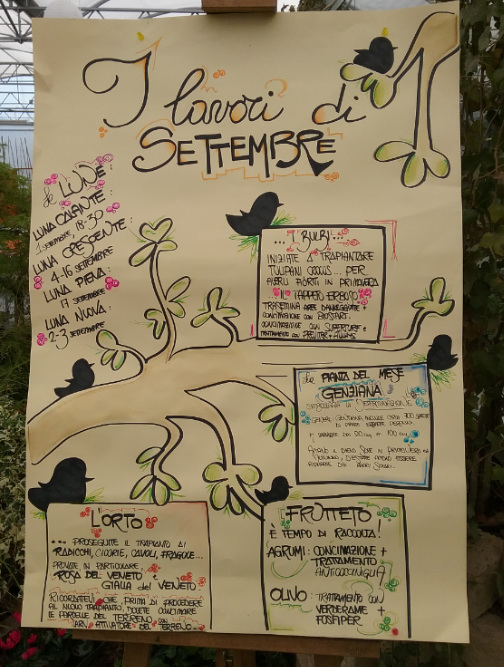 I lavori di
SETTEMBRE
le LUNE:
LUNA CALANTE:
1 SETTEMBRE, 18-30
LUNA CRESCENTE:
4-16 SETTEMBRE
LUNA PIENA:
17 SETTEMBRE
LUNA NUOVA:
2-3 SETTEMBRE
... I BULBI ...
INIZIATE A TRAPIANTARE
TULIPANI CROCUS... PER
AVERLI FIORITI IN PRIMAVERA
... IL TAPPETO ERBOSO
TRASEMINA AREE DANNEGGIATE +
CONCIMAZIONE CON BIOSTART.
CONCIMAZIONE CON SUPERTURF +
TRATTAMENTO CON
la PIANTA DEL MESE
GENZIANA
GENZIANA INCLUDE OLTRE
L'ORTO
... PROSEGUITE IL TRAPIANTO DI
RADICCHI, CICORIE, CAVOLI, FRAGOLE...
PROVATE IN PARTICOLARE
ROSA DEL VENETO e
GIALLA del VENETO
RICORDATEVI CHE PRIMA DI PROCEDERE
AL NUOVO TRAPIANTO, DOVETE CONCIMARE
LE PARCELLE DEL TERRENO CON
ATTIVATORE DEL TERRENO...
FRUTTETO
È TEMPO DI RACCOLTA!
AGRUMI: CONCIMAZIONE +
TRATTAMENTO
ANTICOCCINIGLIA
OLIVO: TRATTAMENTO CON
VERDERAME +
FOSFIPER